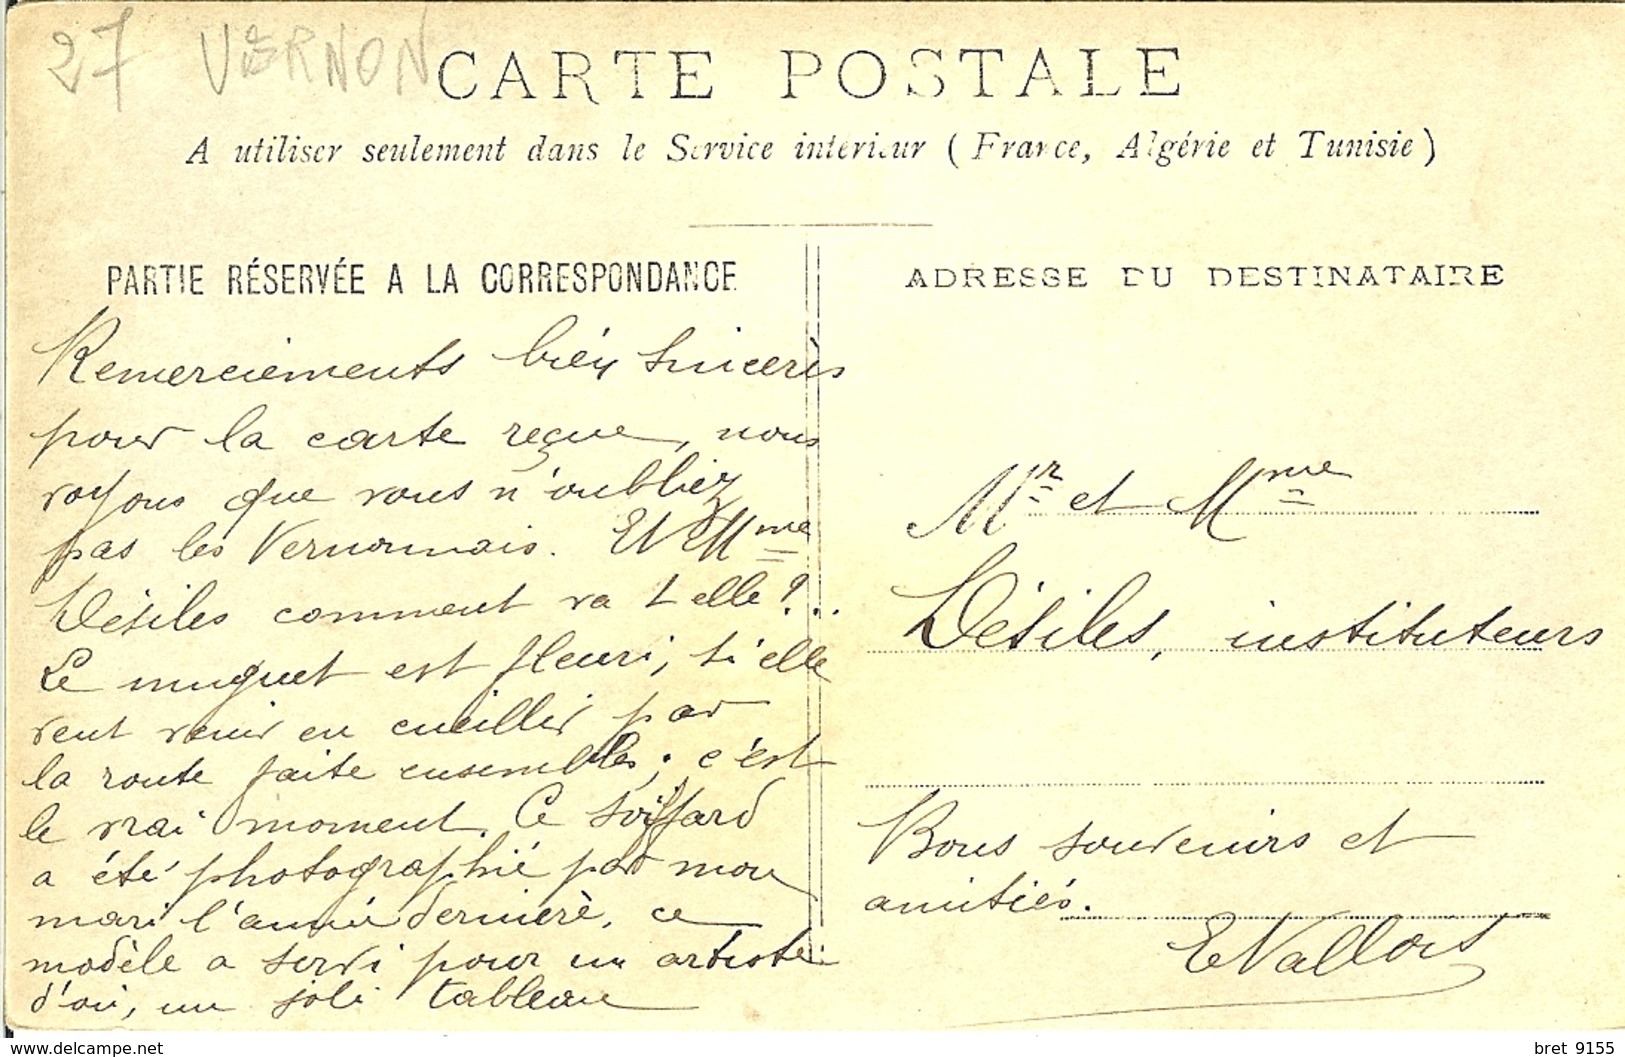 27 VERNON
CARTE POSTALE
A utiliser seulement dans le Service intérieur (France, Algérie et Tunisie)
PARTIE RÉSERVÉE A LA CORRESPONDANCE
Remerciements bien sincères
pour la carte reçue, nous
voyons que vous n'oubliez
pas les Vernonnais. Et Mme
Détiles comment va t elle?..
Le muguet est fleuri, si elle
veut venir en cueillir par
la route faite ensembles; c'est
le vrai moment. Ce soiffard
a été photographié par mon
mari l'année dernière, ce
modèle a servi pour un artiste
d'où, un joli tableau
ADRESSE DU DESTINATAIRE
Mr et Mme
Détiles, instituteurs
Bons souvenirs et
amitiés.
EVallois
delcampe.net
bret 9155